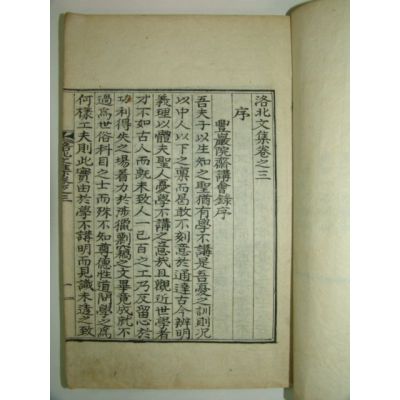 洛北文集卷之三
序
豐巖院齋講會錄序
吾夫子以生知之聖猶有學不講是吾憂之訓則况
以中人以下之禀而曷敢不刻意於通達古今辨明
義理以體夫聖人憂學不講之意哉且觀近世學者
才不如古人而旣未致人一己百之工乃反留心於
功利得失之場着力於涉獵剽竊之文畢竟成就不
過爲世俗科目之士而殊不知尊德性道問學之爲
何樣工夫則此實由於學不講明而見識未透之致